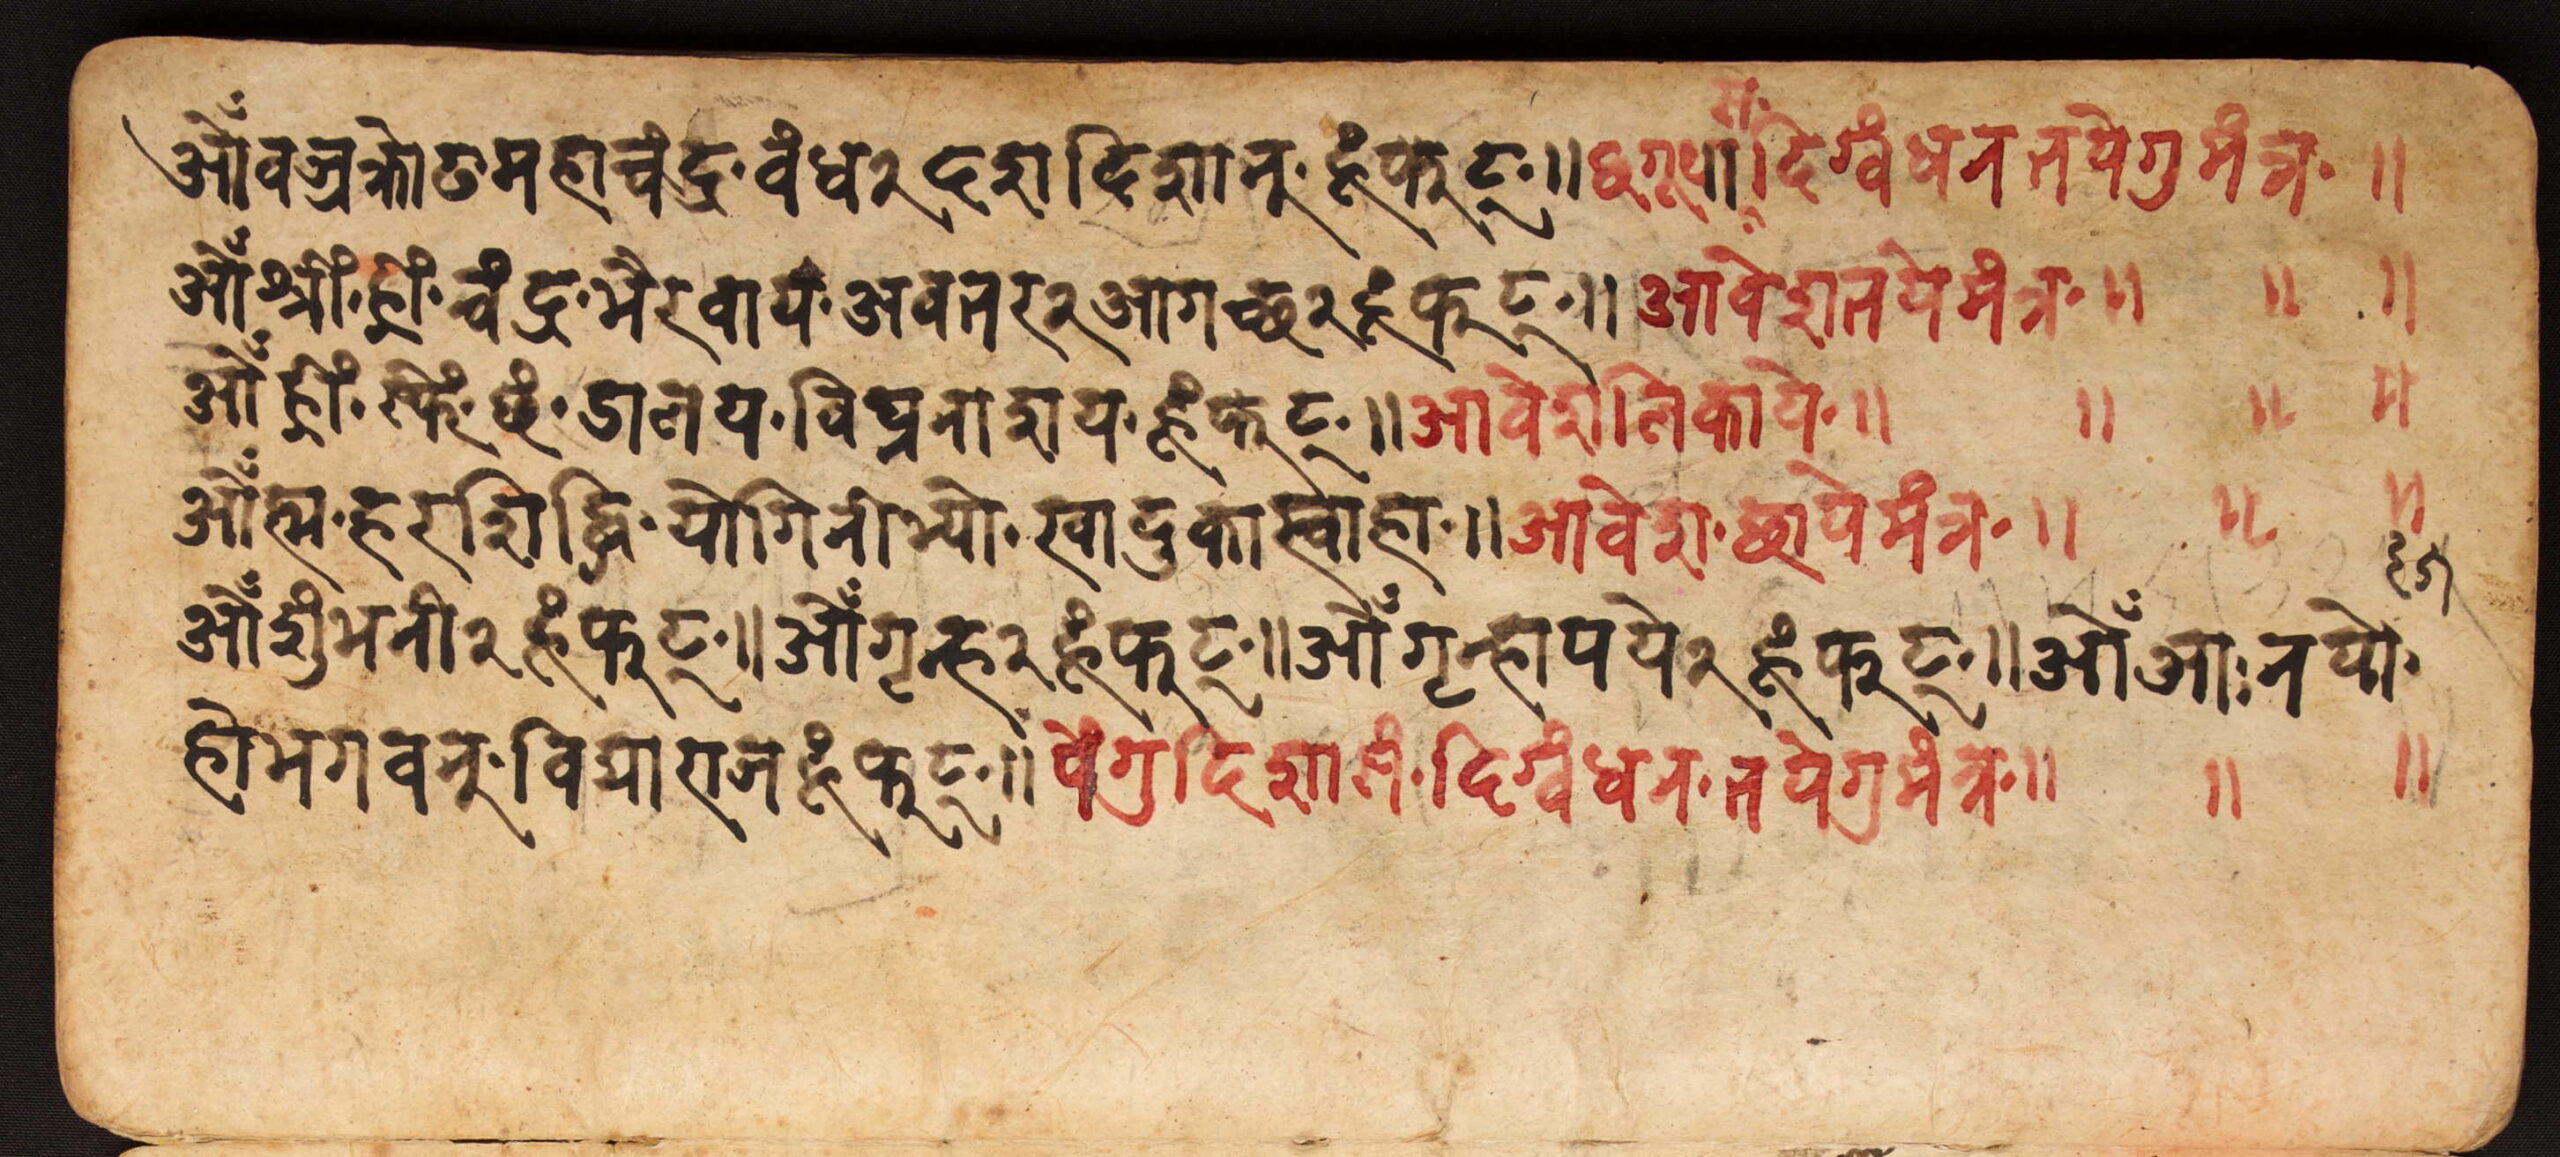 ओँ वज्रक्रोठमहाचंद्र· वंधर दशदिशानु· हूँफट्·॥ छगूया दिग्वंधन तयेगु मंत्र· ॥
ओँ श्रीं· ह्रीं· चंद्र· भैरवाय· अवतर२ आगच्छ२ हूँफट्·॥ आवेश तये मंत्र·॥ ॥ ॥
ओँ ह्रीं· · डालय· विघ्ननाशय· हूँफट्·॥ आवेश लिकाये·॥ ॥ ॥ ॥
ओँ ह· हरशिद्धि· योगिनीभ्यो· खादुका स्वाहा·॥ आवेश· छाये मंत्र·॥ ॥ ॥
ओँ शुंभनी२ हूँफट्·॥ ओँ गृन्ह२ हूँफट्·॥ ओँ गृन्हापये२ हूँफट्·॥ ओँ आःनयो·
हो भगवनु· विद्याराज हूँफट्·॥ पेंगु दिशानं· दिग्वंधन· तयेगु मंत्र·॥ ॥ ॥